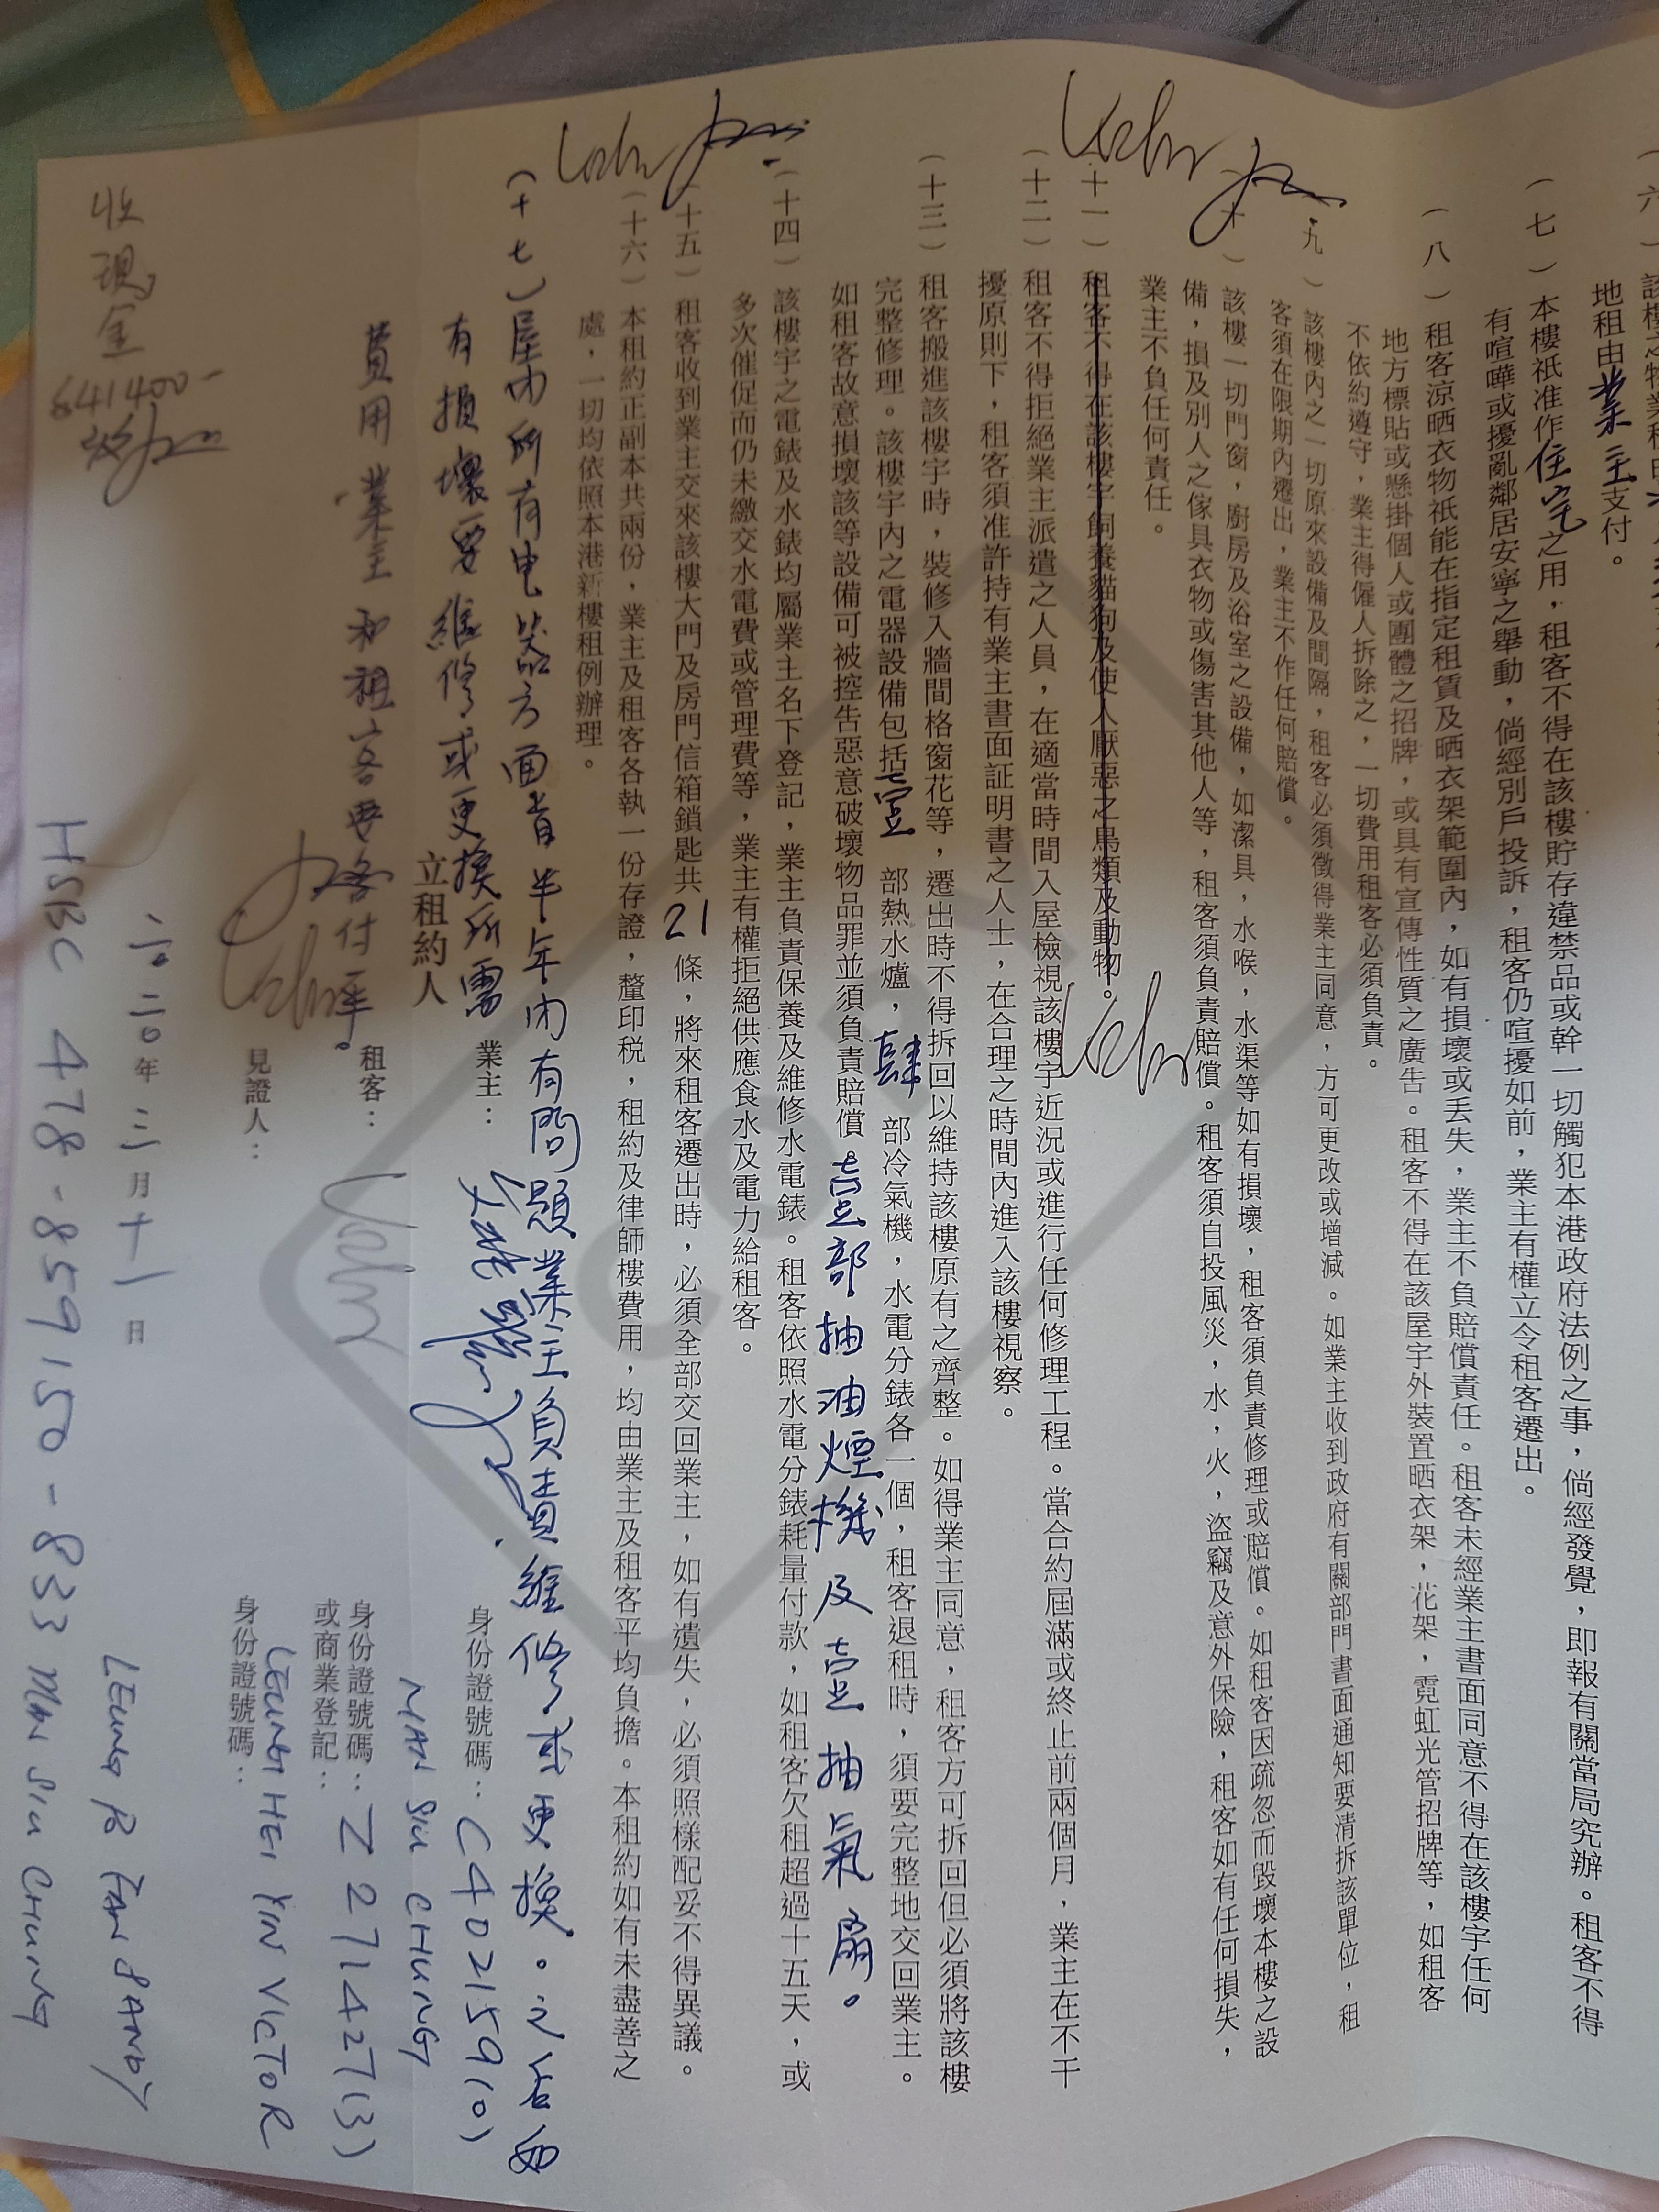 地租由業主支付。
（七）本樓祇准作住宅之用，租客不得在該樓貯存違禁品或幹一切觸犯本港政府法例之事，倘經發覺，即報有關當局究辦。租客不得
有喧嘩或擾亂鄰居安寧之舉動，倘經別戶投訴，租客仍喧擾如前，業主有權立令租客遷出。
（八）租客涼晒衣物祇能在指定租賃及晒衣架範圍內，如有損壞或丟失，業主不負賠償責任。租客未經業主書面同意不得在該樓宇任何
地方標貼或懸掛個人或團體之招牌，或具有宣傳性質之廣告。租客不得在該屋宇外裝置晒衣架，花架，霓虹光管招牌等，如租客
不依約遵守，業主得僱人拆除之，一切費用租客必須負責。
九）該樓內之一切原來設備及間隔，租客必須徵得業主同意，方可更改或增減。如業主收到政府有關部門書面通知要清拆該單位，租
客須在限期內遷出，業主不作任何賠償。
十）該樓一切門窗，廚房及浴室之設備，如潔具，水喉，水渠等如有損壞，租客須負責修理或賠償。如租客因疏忽而毀壞本樓之設
備，損及別人之傢具衣物或傷害其他人等，租客須負責賠償。租客須自投風災，水，火，盜竊及意外保險，租客如有任何損失，
業主不負任何責任。
十一）租客不得在該樓宇飼養貓狗及使人厭惡之鳥類及動物。
（十二）租客不得拒絕業主派遣之人員，在適當時間入屋檢視該樓宇近況或進行任何修理工程。當合約屆滿或終止前兩個月，業主在不干
擾原則下，租客須准許持有業主書面証明書之人士，在合理之時間內進入該樓視察。
（十三）租客搬進該樓宇時，裝修入牆間格窗花等，遷出時不得拆回以維持該樓原有之齊整。如得業主同意，租客方可拆回但必須將該樓
完整修理。該樓宇內之電器設備包括壹部熱水爐，肆部冷氣機，水電分錶各一個，租客退租時，須要完整地交回業主。
如租客故意損壞該等設備可被控告惡意破壞物品罪並須負責賠償。壹部抽油煙機及壹抽氣扇。
十四）該樓宇之電錶及水錶均屬業主名下登記，業主負責保養及維修水電錶。租客依照水電分錶耗量付款，如租客欠租超過十五天，或
多次催促而仍未繳交水電費或管理費等，業主有權拒絕供應食水及電力給租客。
十五）租客收到業主交來該樓大門及房門信箱鎖匙共21條，將來租客遷出時，必須全部交回業主，如有遺失，必須照樣配妥不得異議。
（十六）本租約正副本共兩份，業主及租客各執一份存證，釐印稅，租約及律師樓費用，均由業主及租客平均負擔。本租約如有未盡善之
處，一切均依照本港新樓租例辦理。
（十七）屋內所有电器方面首半年内有問題業主負責維修或更換。之后如
有損壞要維修或更換所需
費用業主和租客要各付一半。
立租約人
業主：
身份證號碼：C402159(0)
MAN SIU CHUNG
租客：
身份證號碼：Z271427(3)
或商業登記：
LEUNG HEI YIN VICTOR
見證人：
身份證號碼：
二〇二〇年三月十一日
LEUNG PO FAN SANDY
收現金
$41400-
HSBC 478-859150-833 MAN SIU CHUNG